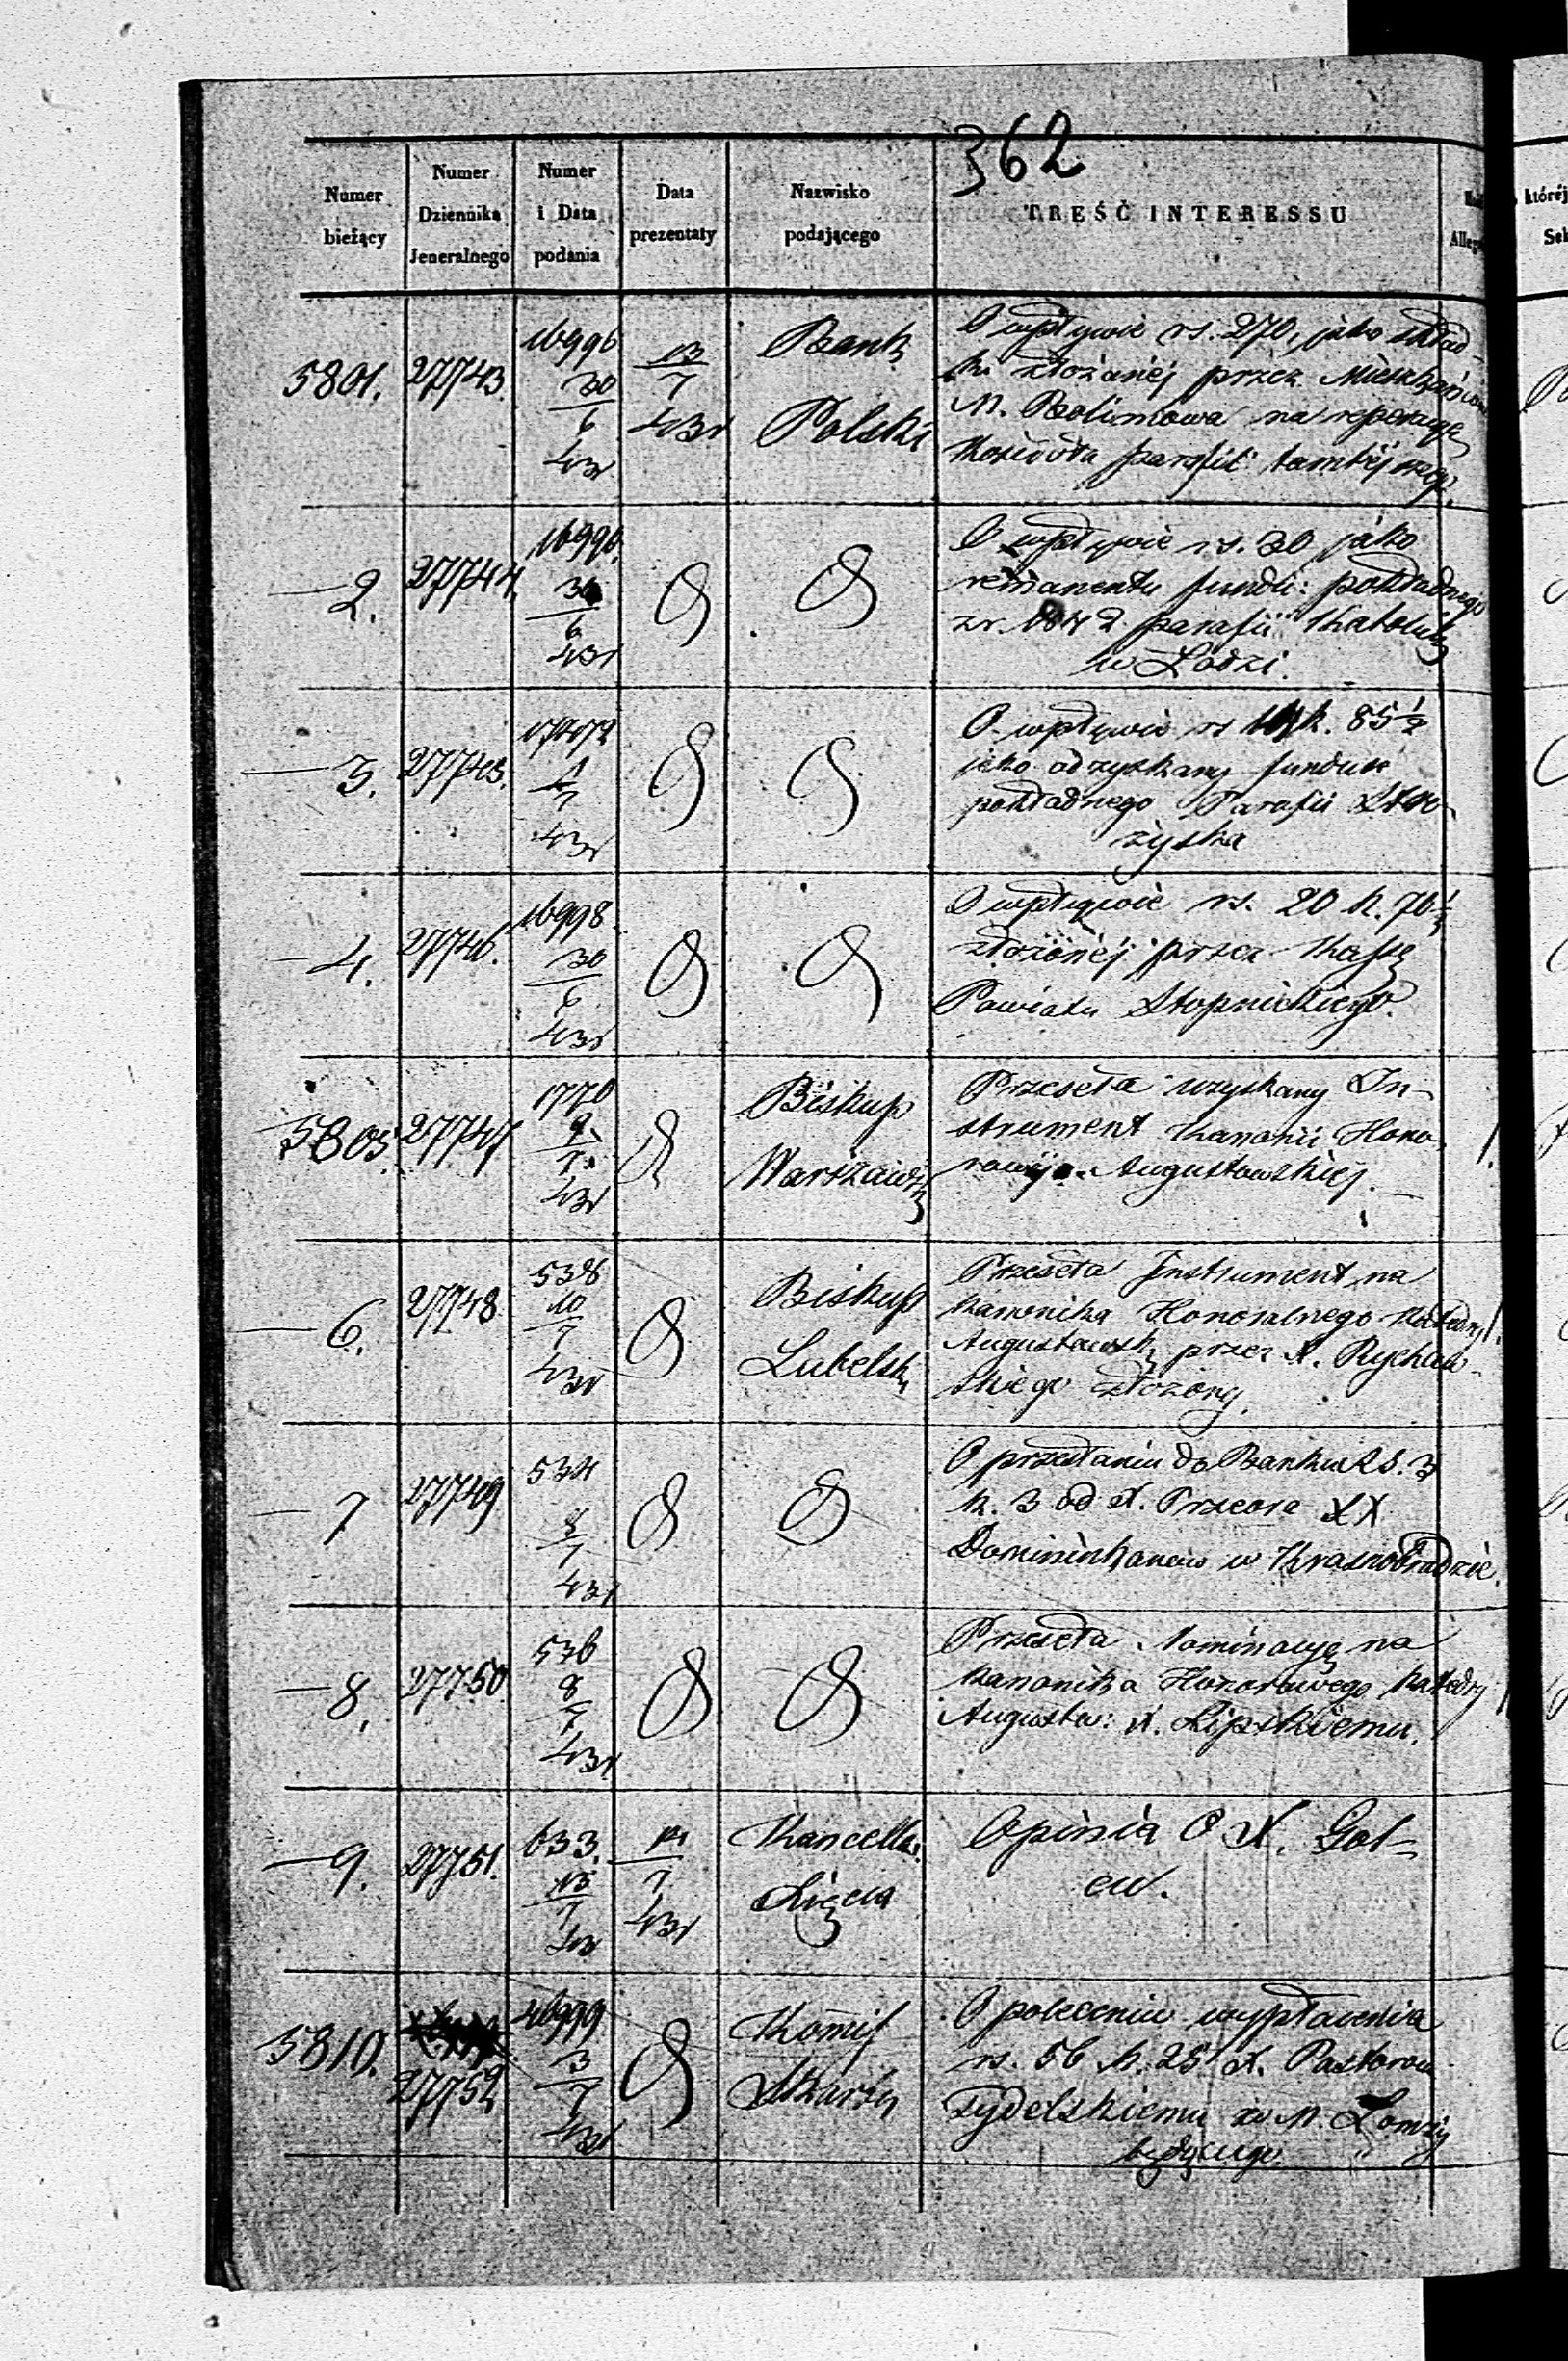 362
Numer bieżący
Numer Dziennika Jeneralnego
Numer i Data podania
Data prezentaty
Nazwisko podającego
TREŚĆ INTERESSU
5801. 27743. 16996 30/6 431 13/7 431 Bank Polski
O wpływie rs. 270, jako skład-
ki złożonéj przez Mieszkańców
M. Bolimowa na reperacyę
Kościoła parafii tamtéjszego.
—2. 27744. 16996. 30/6 431
O wpływie rs. 30 jako
remanentu fundu: pokładnego
zr. 1842 parafii Katolicki
w Łodzi.
—3. 27745. 17
O wpływie rs k. 85½
jako odzyskany fundusz
pokładnego Parafii
—4. 27746. 16998. 30/6 431
O wpływie rs. 20 k. 70½
złożonéj przez Kassę
Powiatu Stopnickiego.
5805. 27747 1770 9/7 431 Biskup Warszaws
Przeseła uzyskany In-
strument Kanonii Hono-
rowéj Augustowskiej.
—6. 27748. 538 10/7 431 Biskup Lubelski
Przeseła Instrument na
Kanonika Honoralnego Katedry
Augustowsk przez X. Rychaw-
skiego złożony.
—7 27749 534 8/7 431
O przesłaniu do Banku RS. 3
k. 3 od X. Przeora XX
Dominikanów w Krasnobrodzie.
—8. 27750. 536 8/7 431
Przeseła Nominacyę na
Kanonika Honorowego Katedry
Augustow: X. Lipskiemu.
—9. 27751. 633. 13/7 43 14/7 431 Kancellar. Xięcia
Opinia O X. Goł-
ew.
5810. 27752 16999 3/7 431 Kommis Skarbu
O poleceniu wypłacenia
rs. 56 k. 25 X. Pastorowi
w M. Łomży
będącego.
któréj